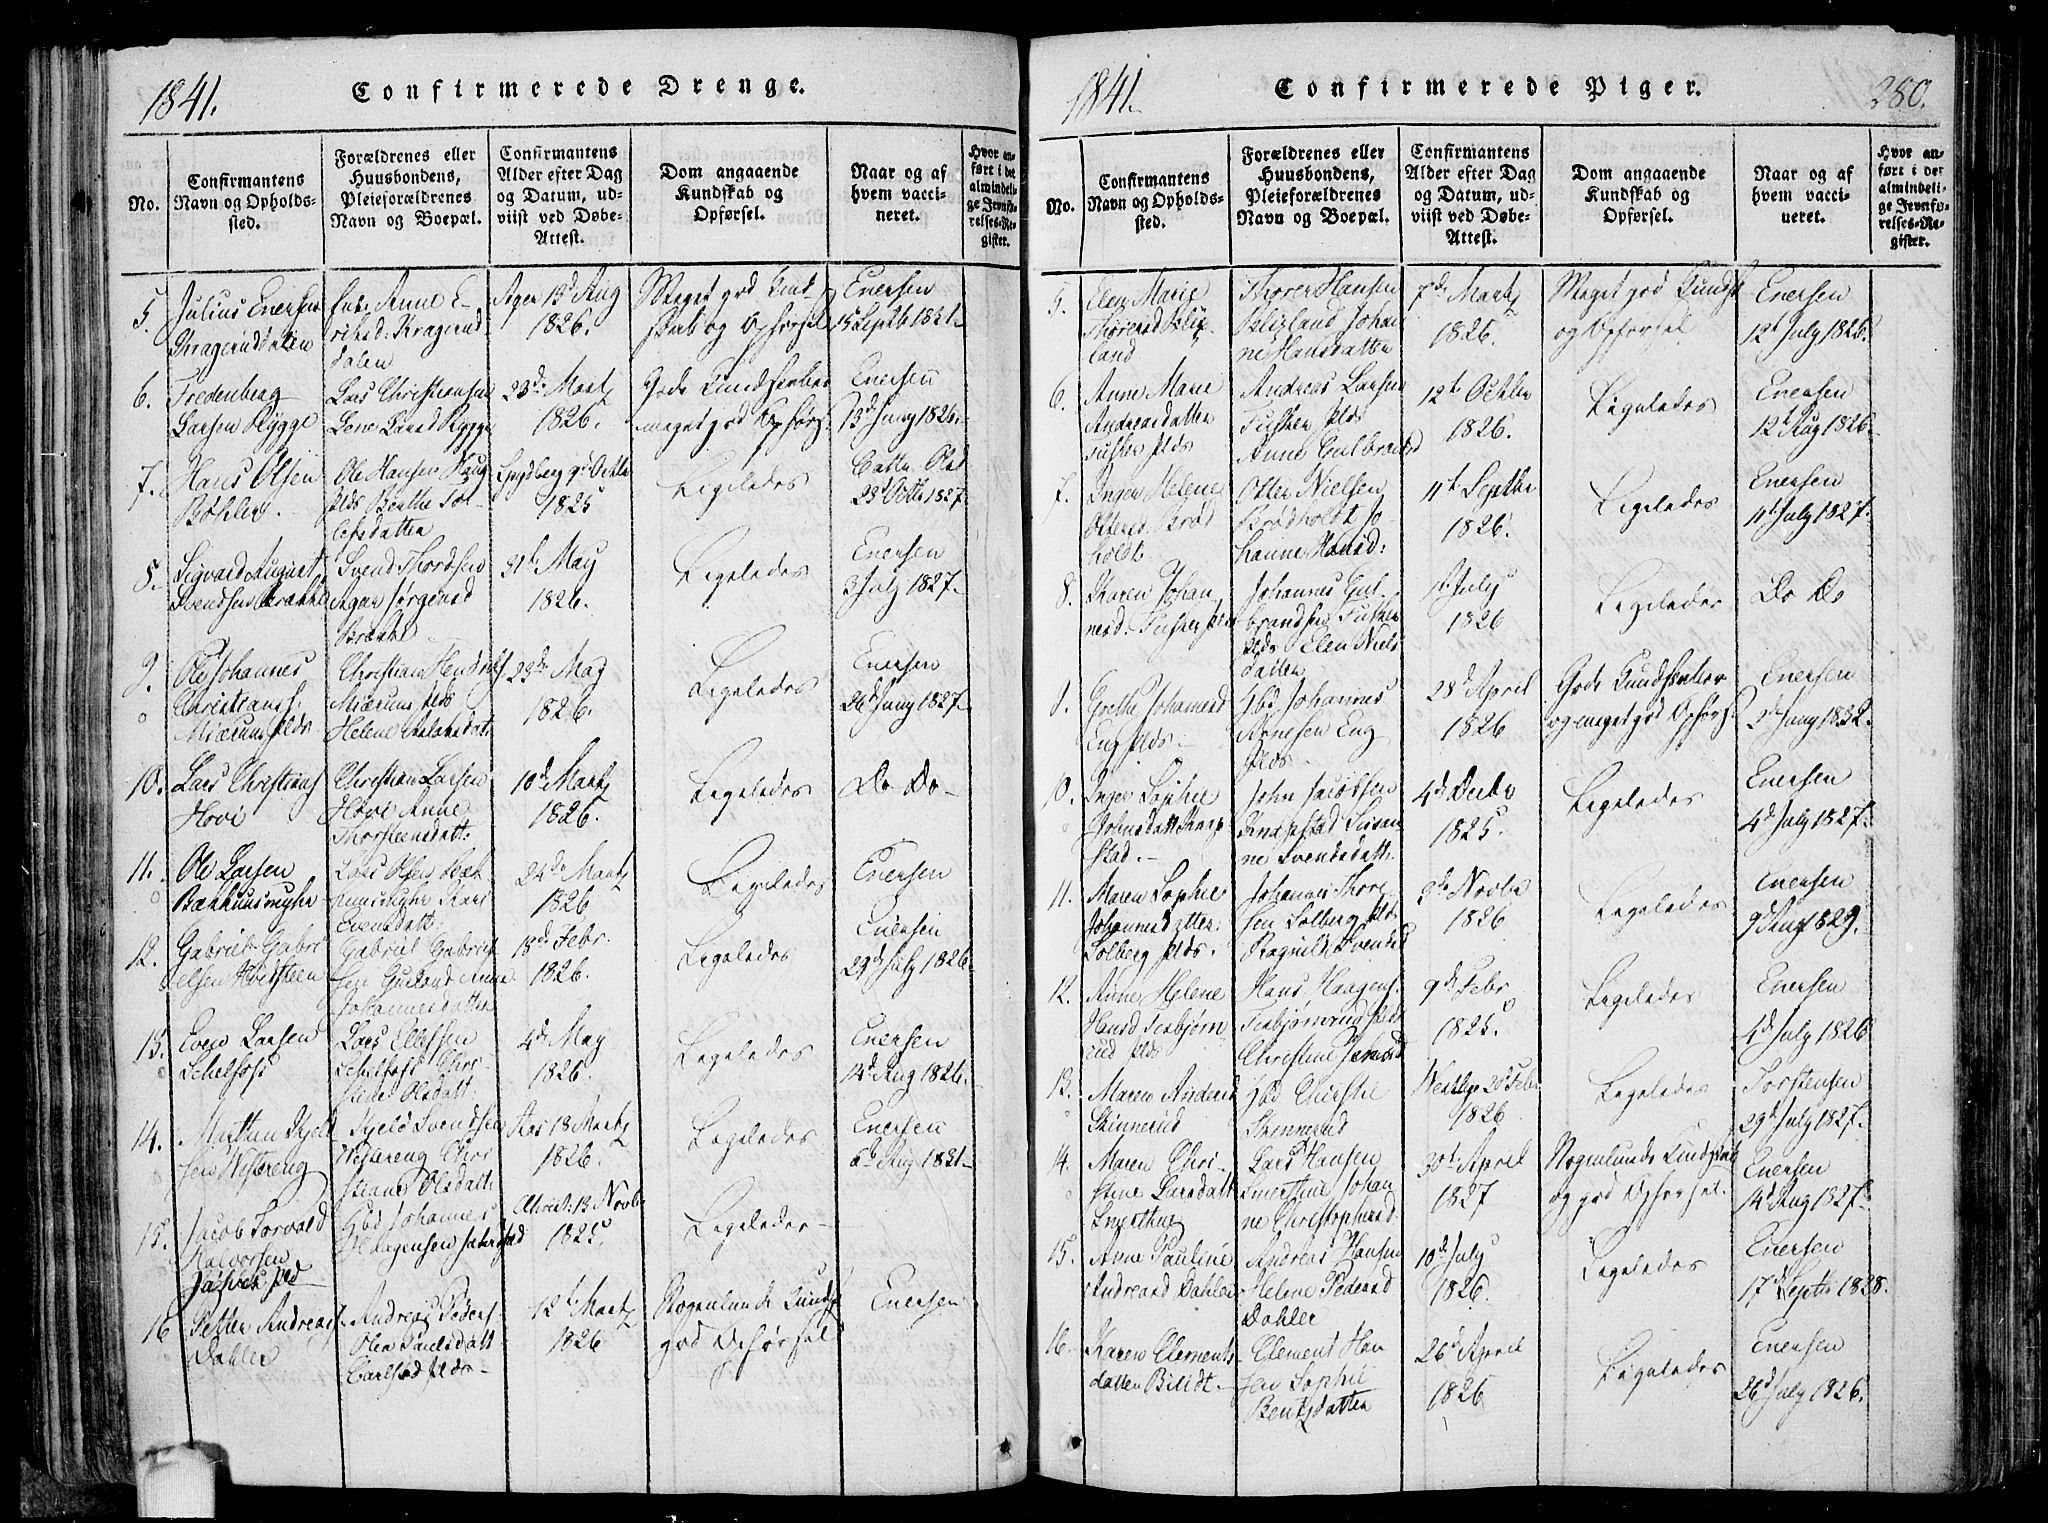 1841.
Confirmerede Drenge.
No.
Confirmantens
Navn og Opholds-
sted.
Forældrenes eller
Huusbondens,
Pleieforældrenes
Navn og Boepæl.
Confirmantens
Alder efter Dag
og Datum, ud-
viist ved Døbe-
Attest.
Dom angaaende
Kundskab og
Opførsel.
Naar og af
hvem vacci-
neret.
Hvor an-
ført i det
almindeli-
ge Jevnfø-
relses-Re-
gister.
5.
Julius Enersen
Krageruddalen
Anne E-
dalen
Ager 13d Aug
1826.
Meget god Kund-
skab og Opførsel
Enersen
15 Septb 1831
6.
Fredenberg
Larsen Rygge
Lars Christiansen
Rygge
23de Martz
1826.
Gode Kundskaber
meget god Opførs.
Enersen
13d Juny 1826.
7.
Hans Olsen
Bøhler.
Ole Hansen Haug
Plds Berthe Tol-
lefsdatter
9d Octbr
1825
Ligeledes
23d Octbr 1827
8.
Sigvard August
Svendsen Brække
Svend Thordsen
Agar Jørgensd
Brække
31te May
1826.
Ligeledes
Enersen
3 July 1827.
9.
Ole Johannes
Christians.
Miærum Plds
Christian Hendrichs.
Miærum Plds
Helene Aslaksdatt.
23de May
1826.
Ligeledes
Enersen
26d Juny 1827
10.
Lars Christians
Hovi
Christian Larsen
Hovi Anne
Thorsteensdatt:
10d Martz
1826.
Ligeledes
Do Do
11.
Ole Larsen
Bækhuusmyhr
Lars Olsen Bæk-
huusmyhr Kari
Evensdatt:
24de Martz
1826
Ligeledes
Enersen
12.
Gabriel Gabri
elsen Hvidsteen
Gabriel Gabriel
sen Anne
Johannesdatter
18de Febr.
1826.
Ligeledes
Enersen
29d July 1826
13.
Even Larsen
Schelfoss
Lars Ellefsen
Schelfoss Chri-
stine Olsdatt:
4de May
1826.
Ligeledes
Enersen
14d Aug 1826.
14.
Marthin Kjeld
sen Westereng
Kjeld Svendsen
Westereng Chri
stiane Olsdatt:
Aas 18 Martz
1826.
Ligeledes
Enersen
6d Aug 1831
15.
Jacob Torvald
Halvorsen
Gbd Johannes
Christ: 13 Novbr
1825.
Ligeledes
16
Petter Andreas.
Dahler
Andreas Peders
Olea Paulsdatt
Carlstad Plds
12t Martz
1826
Nogenlunde Kundsk
god Opførsel
Enersen
1841.
Confirmerede Piger.
280.
No.
Confirmantens
Navn og Opholds-
sted.
Forældrenes eller
Huusbondens,
Pleieforældrenes
Navn og Boepæl.
Confirmantens
Alder efter Dag
og Datum, ud-
viist ved Døbe-
Attest.
Dom angaaende
Kundskab og
Opførsel.
Naar og af
hvem vacci-
neret.
Hvor an-
ført i det
almindeli-
ge Jevnfø-
relses-Re-
gister.
5.
Elen Marie
land
Thorer Hansen
Johan
ne Hansdatter
7de Martz
1826.
Meget god Kundsk
og Opførsel
Enersen
12t July 1826.
6.
Anne Marie
Andreasdatter
Fusker Plds
Andreas Larsen
Fusker Plds
Anne Gulbrandsd
12t Octbr
1826.
Ligeledes
Enersen
12t Aug 1826
7.
Inger Helene
Ottersd Brød
holdt
Otter Nielsen
Brødholdt Jo-
hanne Hansd:
11t Septbr
1826.
Ligeledes
Enersen
11t July 1827.
8.
Karen Johan
nesd. Fusker Plds
Johannes Gul-
brandsen Fusker
Plds Elen Niels
datter
1t July
1826
Ligeledes
Do Do
9.
Grethe Johannesd
Eng Plds
Gbd Johannes
Arnesen Eng
Plds
28d April
1826
Gode Kundskaber
og meget god Opførs.
Enersen
2d Juny 1832.
10.
Inger Sophie
Johnsdatt Knap
stad.
John Jacobsen
Knapstad Susan
ne Svendsdatt:
4d Decbr
1825.
Ligeledes
Enersen
4d July 1827.
11.
Maren Sophie
Johannesdatter
Solberg Plds.
Johannes Thore
sen Solberg Plds
Ragnild Svendsd
3de Novbr
1826
Ligeledes
Enersen
9d Aug 1829.
12.
Anne Helene
Hansd Torbjørn
rud Plds
Hans Haagens.
Torbjørnrud Plds
Christine
9de Febr
1825.
Ligeledes
Enersen
4d July 1826
13.
Maren Andersd
Skinnerud
Gbd Christie
Skinnerud
Nestbye 20d Febr
1826
Ligeledes
Torstensen
29d July 1827.
14.
Maren Chri-
stine Larsdatt
Smerthue
Lars Hansen
Smerthue Johan
ne Christophersd.
30t April
1827
Nogenlunde Kundskab
og god Opførsel.
Enersen
14d Aug 1827.
15.
Anne Pauline
Andreasd Dahler
Andreas Hansen
Helene Pedersd
Dahler
10de July
1826.
Ligeledes
Enersen
17d Septbr 1828.
16.
Karen Clements
datter Billidt.
Clement Han
sen Sophie
Bentzdatter
26d April
1826
Ligeledes
Enersen
26d July 1826.